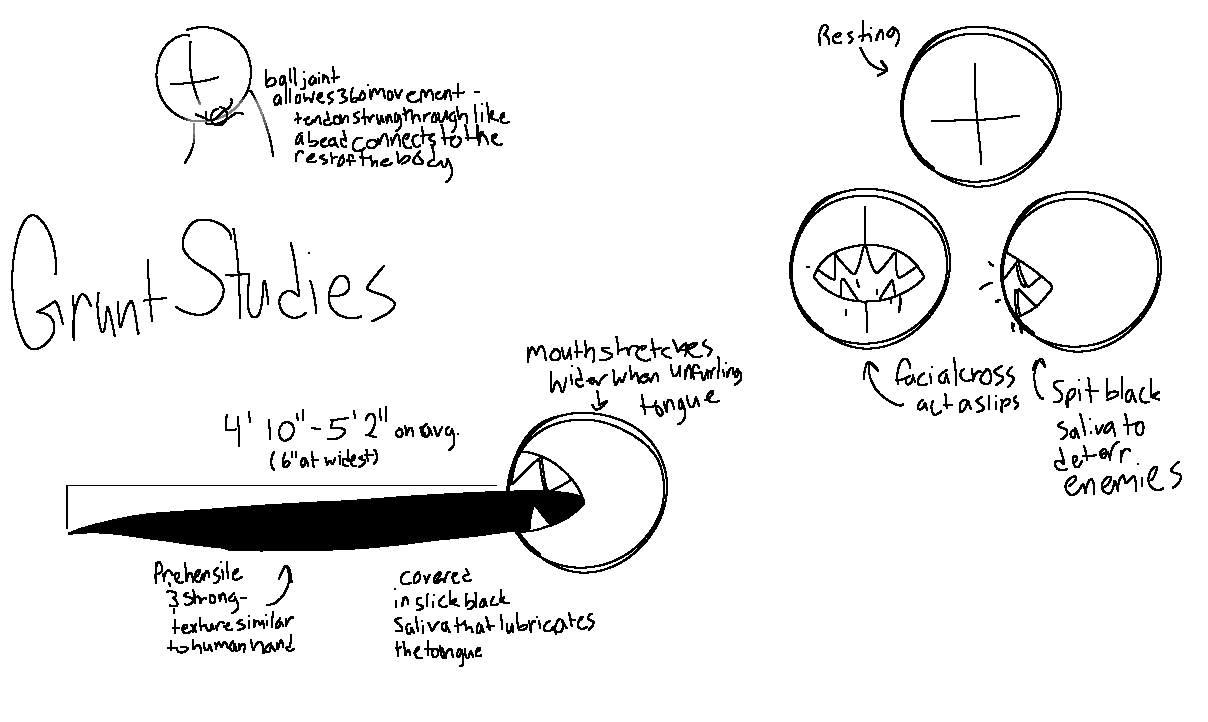 ball joint
allowes 360 movement -
tendon strung through like
a bead connects to the
rest of the body
Resting
Grunt Studies
facial cross
act as lips
Spit black
Saliva to
deterr
enemies
mouth stretches
wider when unfurling
tongue
4' 10" - 5' 2" on avg.
(6" at widest)
Prehensile
& strong-
texture similar
to human hand
covered
in slick black
Saliva that lubricates
the tongue